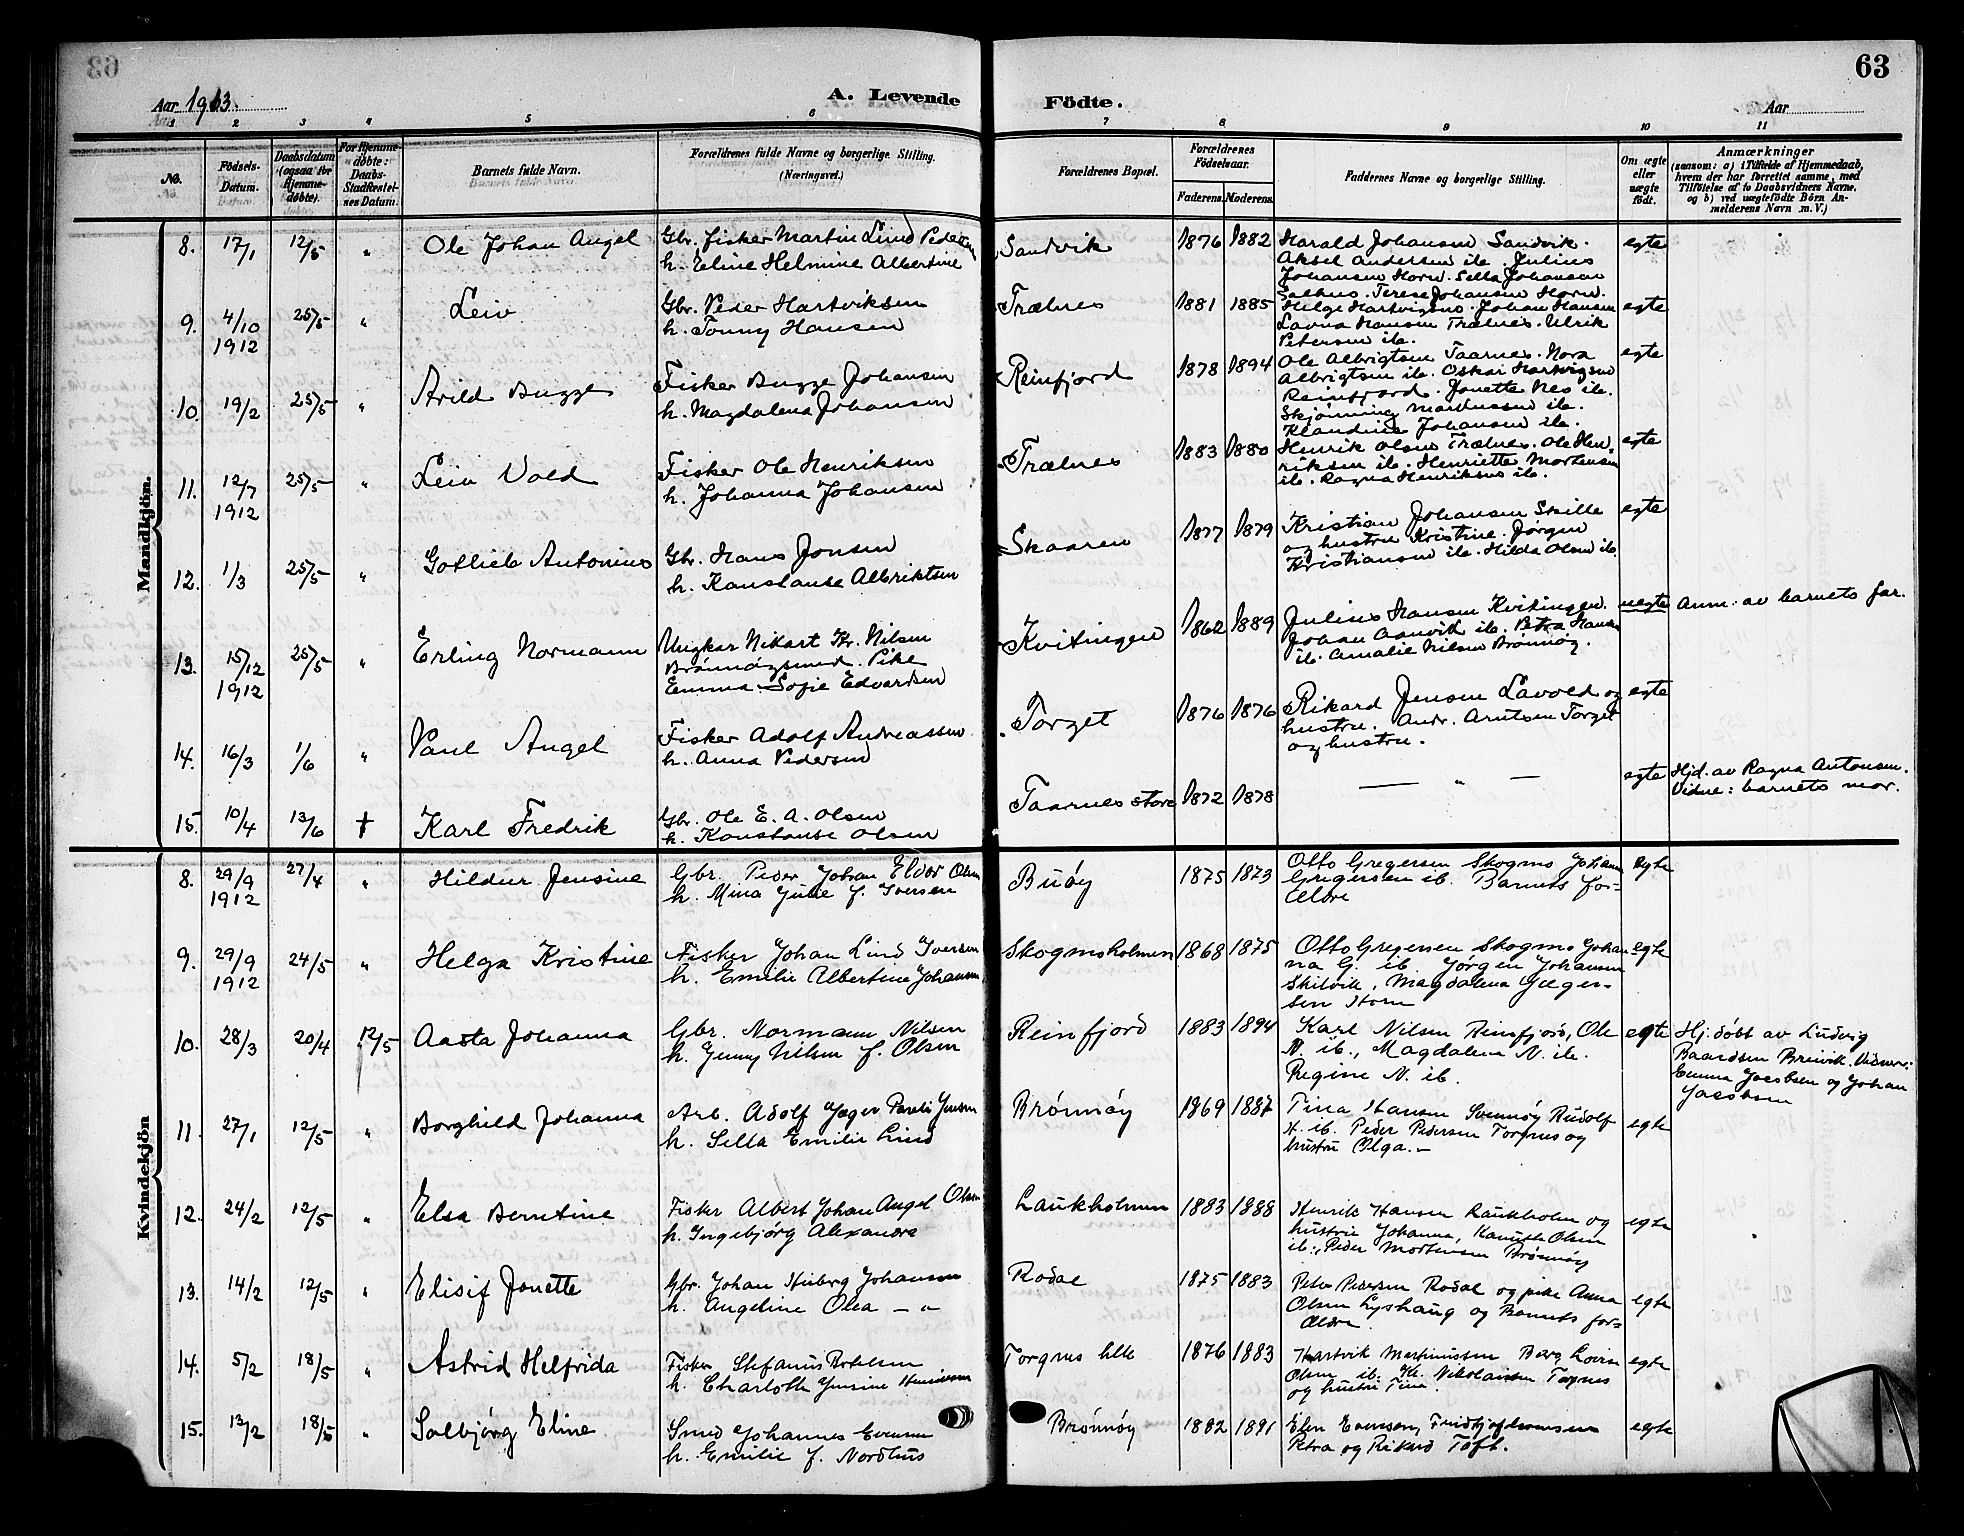 63
Aar 1913.
A. Levende Födte.
Aar
1 2 3 4 5 6 7 8 9 10 11
No.
Fødsels-Datum.
Daabsdatum (ogsaa for Hjemmedøbte).
For Hjemmedøbte: Daabs-Stadfæstelses Datum.
Barnets fulde Navn.
Forældrenes fulde Navne og borgerlige Stilling. (Næringsvei.)
Forældrenes Bopæl.
Forældrenes Fødselsaar.
Faderens. Moderens.
Faddernes Navne og borgerlige Stilling.
Om ægte eller uægte født.
Anmærkninger
(saasom: a) i Tilfælde af Hjemmedaab,
hvem der har forrettet samme, med
Tilføielse af to Daabsvidners Navne,
og b) ved uægtefødte Børn An-
melderens Navn m. V.)
Mandkjøn.
8. 17/1 12/5 " Ole Johan Angel
Gbr. fisker Martin Lind Pedersen
h. Eline Helmine Albertine
Sandvik 1876 1882
Harald Johansen Sandvik.
Aksel Andersen ib. Julius
Johansen Horn. Sella Johansen
Salhus. Terese Johansen Horn.
egte
9. 4/10 1912 25/5 " Leiv
Gbr. Peder Hartviksen
h. Tonny Hansen
Trælnes 1881 1885
Helge Hartvigsen. Johan Hansen
Lavna Hansen Trælnes. Ulrik
Petersen ib.
egte
10. 19/2 25/5 " Arild Bugge
Fisker Bugge Johansen
h. Magdalena Johansen
Reinfjord 1878 1894
Ole Albrigtsen Taarnes. Nora
Albrigtsen ib. Oskar Hartvigsen
Reinfjord. Jonette Nes ib.
Skjønning Marthinussen ib.
Klaudine Johansen ib.
egte
11. 12/7 1912 25/5 " Leiv Vold
Fisker Ole Henriksen
h. Johanna Johansen
Trælnes 1883 1880
Henrik Olsen Trælnes. Ole Hen-
riksen ib. Henriette Mortensen
ib. Ragna Henriksens ib.
egte
12. 1/3 25/5 " Gotlieb Antonius
Gbr. Hans Jonsen
h. Konstanse Albriktsen
Skaaren 1877 1879
Kristian Johansen Skille
og hustru Kristine. Jørgen
Kristiansen ib. Hilda Olsen ib.
egte
13. 15/12 1912 25/5 " Erling Normann
Ungkar Nikart Kr. Nilsen
Brønnøysund. Pike
Emma Sofie Edvardsen
Kvitingen 1862 1889
Julius Hansen Kvitingen.
Johan Aanvik ib. Petra Hansen
ib. Amalie Nilsen Brønnøy.
uegte Anm: av barnets far.
14. 16/3 1/6 " Paul Angel
Fisker Adolf Andreassen
h. Anna Pedersen
Torget 1876 1876
Rikard Jensen Lavold og
hustru. Andr. Arntsen Torget
og hustru.
egte
15. 10/4 13/6 † Karl Fredrik
Gbr. Ole E. A. Olsen
h. Konstanse Olsen
Taarnes store 1872 1878 — " —
egte Hjd. av Ragna Antonsen.
Vidne: barnets mor.
Kvindekjön
8. 29/9 1912 27/4 " Hildur Jensine
Gbr. Peder Johan Eldor Olsen
h. Mina Julie f. Iversen
Buøy 1875 1873
Otto Gregersen Skogmo Johan
Gregersen ib. Barnets for-
ældre
egte
9. 29/9 1912 24/5 " Helga Kristine
Fisker Johan Lind Iversen
h. Emilie Albertine Johansen
Skogmoholmen 1868 1875
Otto Gregersen Skogmo Johan-
na G. ib. Jørgen Johansen
Skilvik, Magdalena Jæger-
sen Horn
egte
10. 28/3 20/4 12/5 Aasta Johanna
Gbr. Normann Nilsen
h. Jenny Nilsen f. Olsen
Reinfjord 1883 1894
Karl Nilsen Reinfjord, Ole
N. ib., Magdalene N. ib.
Regine N. ib.
egte Hj.døbt av Ludvig
Baardsen Breivik. Vidner:
Emma Jacobsen og Johan
Jacobsen
11. 27/1 12/5 " Borghild Johanna
Arb. Adolf Jæger Pareli Jensen
h. Sella Emilie Lind
Brønnøy 1869 1887
Tina Hansen Svennøy Rudolf
H. ib. Peder Pedersen Torgnes og
hustru Olga. –
egte
12. 24/2 12/5 " Elsa Berntine
Fisker Albert Johan Angel Olsen
h. Ingebjørg Alexandra
Laukholmen 1883 1888
Henrik Hansen Laukholm og
hustru Johanna, Kanutte Olsen
ib., Peder Mortensen Brønnøy
egte
13. 14/2 12/5 " Elisif Jonette
Gbr. Johan Hieberg Johansen
h. Angeline Olea – " –
Rodal 1875 1883
Peter Pedersen Rodal og pike Anna
Olsen Lyshaug og Barnets for-
ældre.
egte
14. 5/2 18/5 " Astrid Helfrida
Fisker Stefanus
h. Charlotte Jensine
Torgnes lille 1876 1883
Hartvik Martinussen Berg Lovise
Olsen ib. Kr. Nikolaisen Torgnes
og hustru Tina.
egte
15. 13/2 18/5 " Solbjørg Eline
Smed Johannes Evensen
h. Emilie f. Nordhus
Brønnøy 1882 1891
Elen Evensen, Fridtjof
Petra og Rikard Toft.
egte